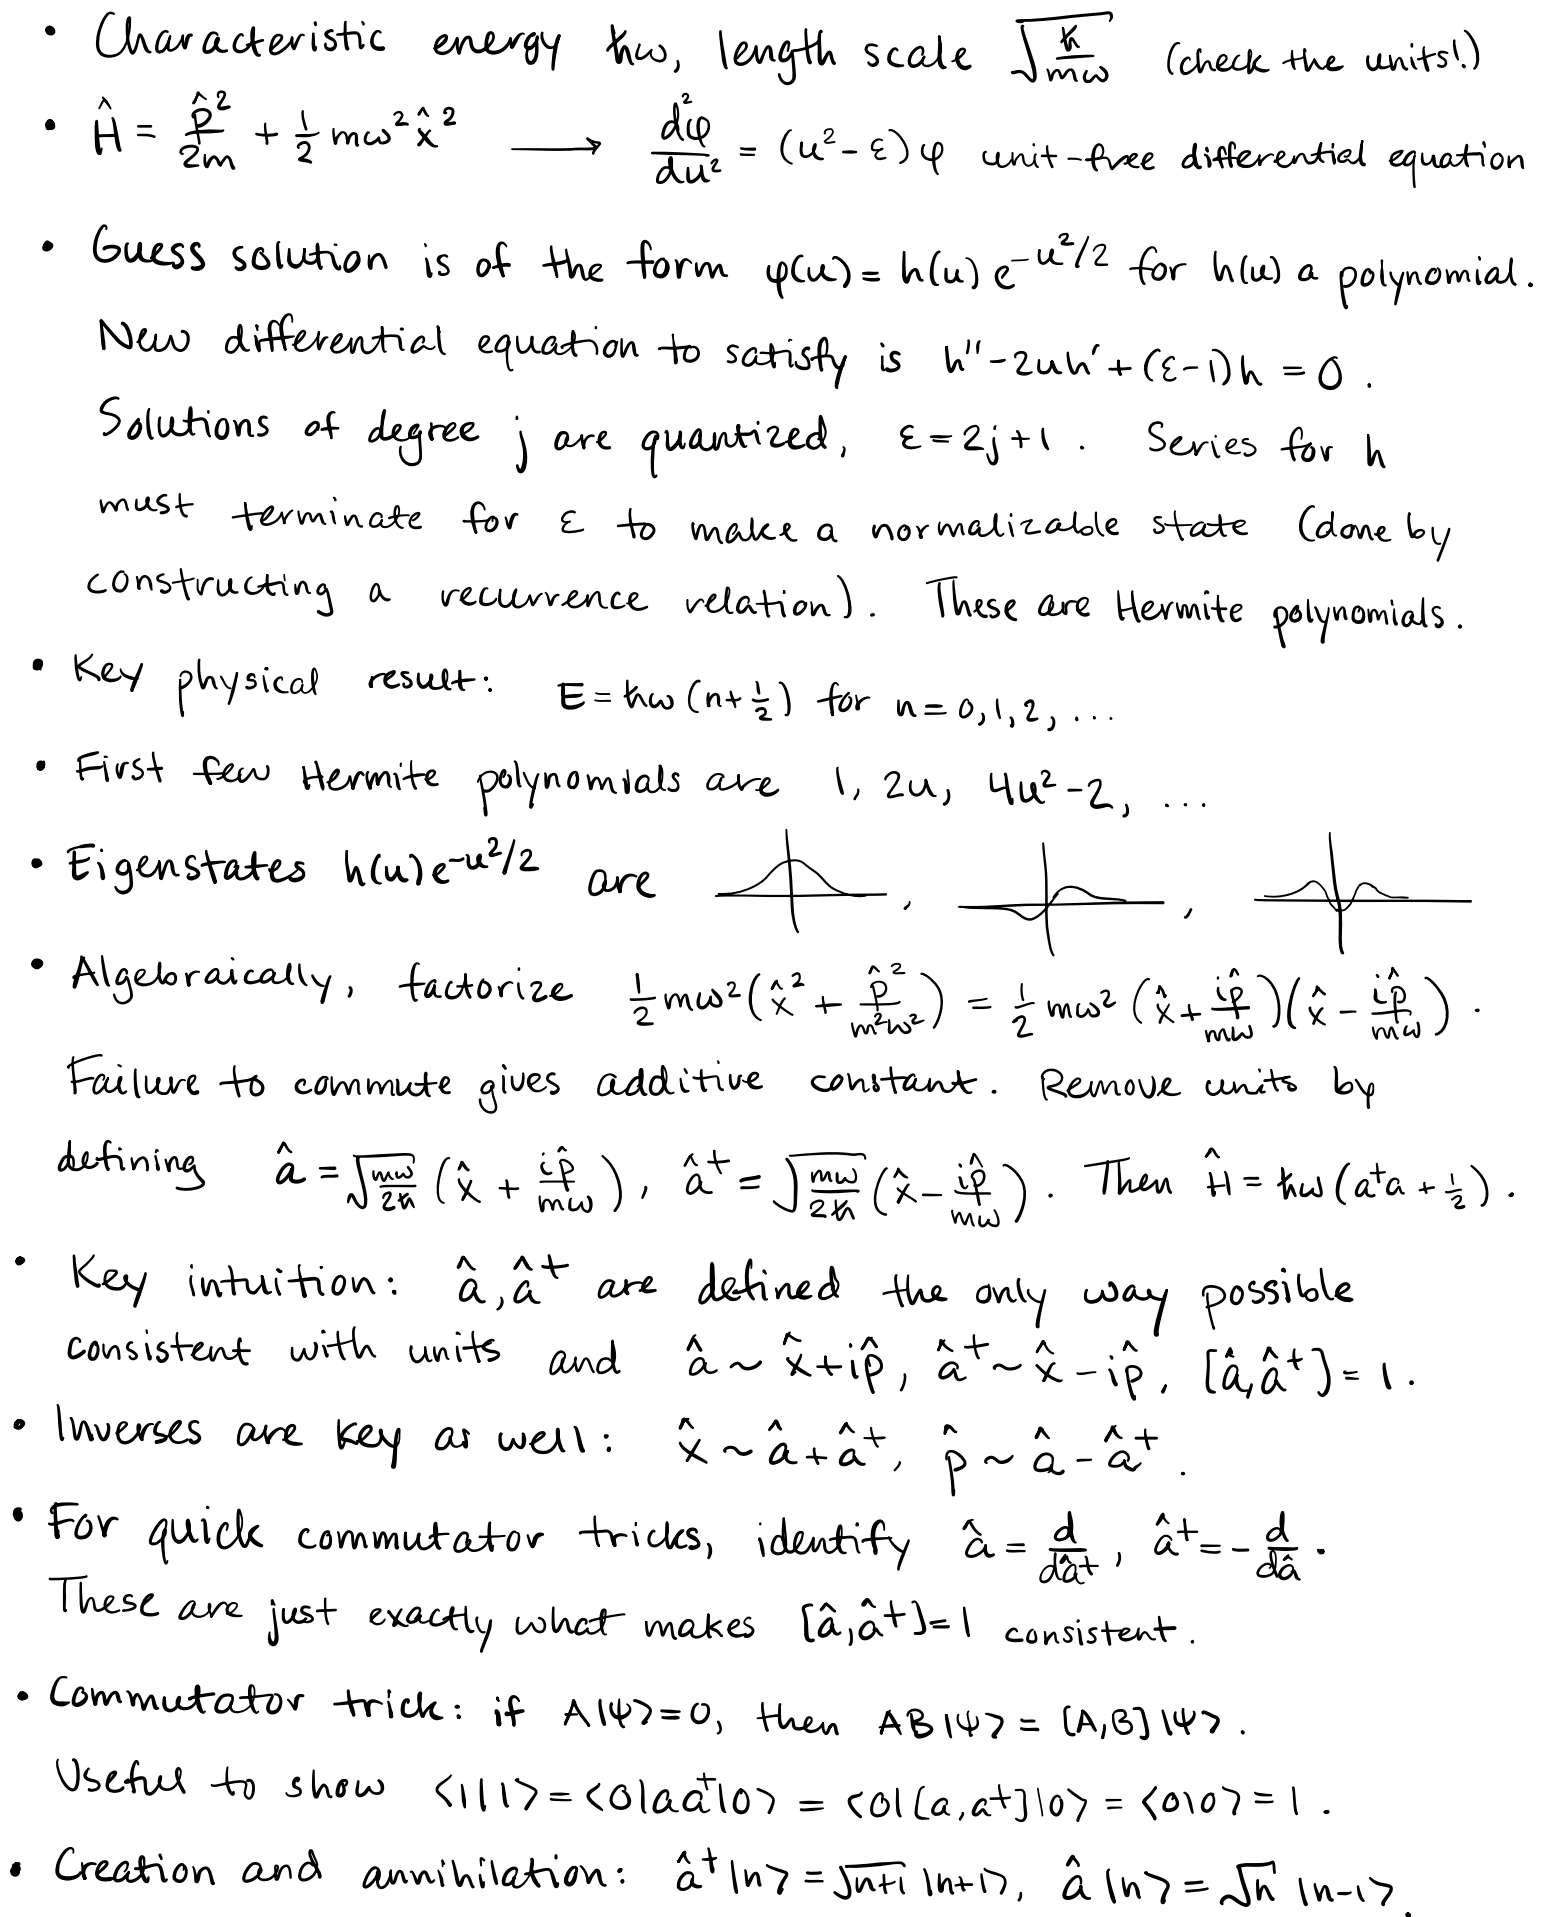 • Characteristic energy ħω, length scale √(ħ/mω) (check the units!)
• Ĥ = p̂²/2m + 1/2 mω² x̂² ⟶ d²φ/du² = (u² - ε)φ unit-free differential equation
• Guess solution is of the form φ(u) = h(u) e^(-u²/2) for h(u) a polynomial.
New differential equation to satisfy is h'' - 2uh' + (ε-1)h = 0.
Solutions of degree j are quantized, ε = 2j+1. Series for h
must terminate for ε to make a normalizable state (done by
constructing a recurrence relation). These are Hermite polynomials.
• Key physical result: E = ħω(n + 1/2) for n = 0, 1, 2, ...
• First few Hermite polynomials are 1, 2u, 4u² - 2, ...
• Eigenstates h(u)e^(-u²/2) are , ,
• Algebraically, factorize 1/2 mω²(x̂² + p̂²/m²ω²) = 1/2 mω² (x̂ + ip̂/mω)(x̂ - ip̂/mω).
Failure to commute gives additive constant. Remove units by
defining â = √(mω/2ħ) (x̂ + ip̂/mω), â† = √(mω/2ħ) (x̂ - ip̂/mω). Then Ĥ = ħω(a†a + 1/2).
• Key intuition: â, â† are defined the only way possible
consistent with units and â ~ x̂ + ip̂, â† ~ x̂ - ip̂, [â, â†] = 1.
• Inverses are key as well: x̂ ~ â + â†, p̂ ~ â - â†.
• For quick commutator tricks, identify â = d/dâ†, â† = -d/dâ.
These are just exactly what makes [â, â†] = 1 consistent.
• Commutator trick: if A|ψ⟩ = 0, then AB|ψ⟩ = [A,B]|ψ⟩.
Useful to show ⟨1|1⟩ = ⟨0|aa†|0⟩ = ⟨0|[a,a†]|0⟩ = ⟨0|0⟩ = 1.
• Creation and annihilation: â†|n⟩ = √(n+1) |n+1⟩, â|n⟩ = √n |n-1⟩.